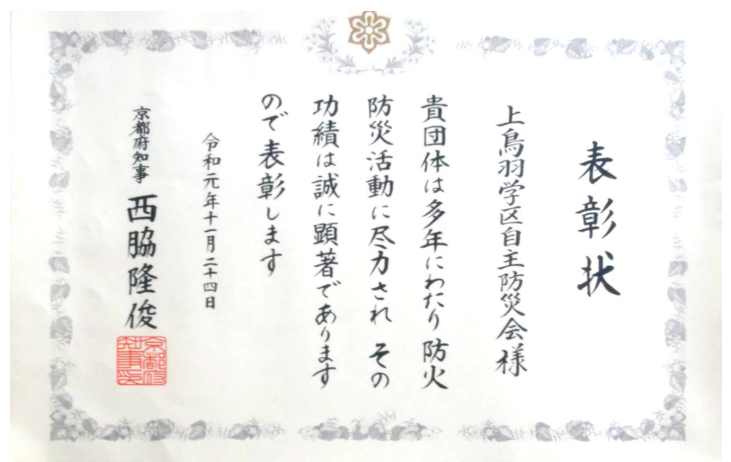 表彰状
上鳥羽学区自主防災会様
貴団体は多年にわたり防火
防災活動に尽力され その
功績は誠に顕著であります
ので表彰します
令和元年十一月二十四日
京都府知事 西脇隆俊
京都府知事印